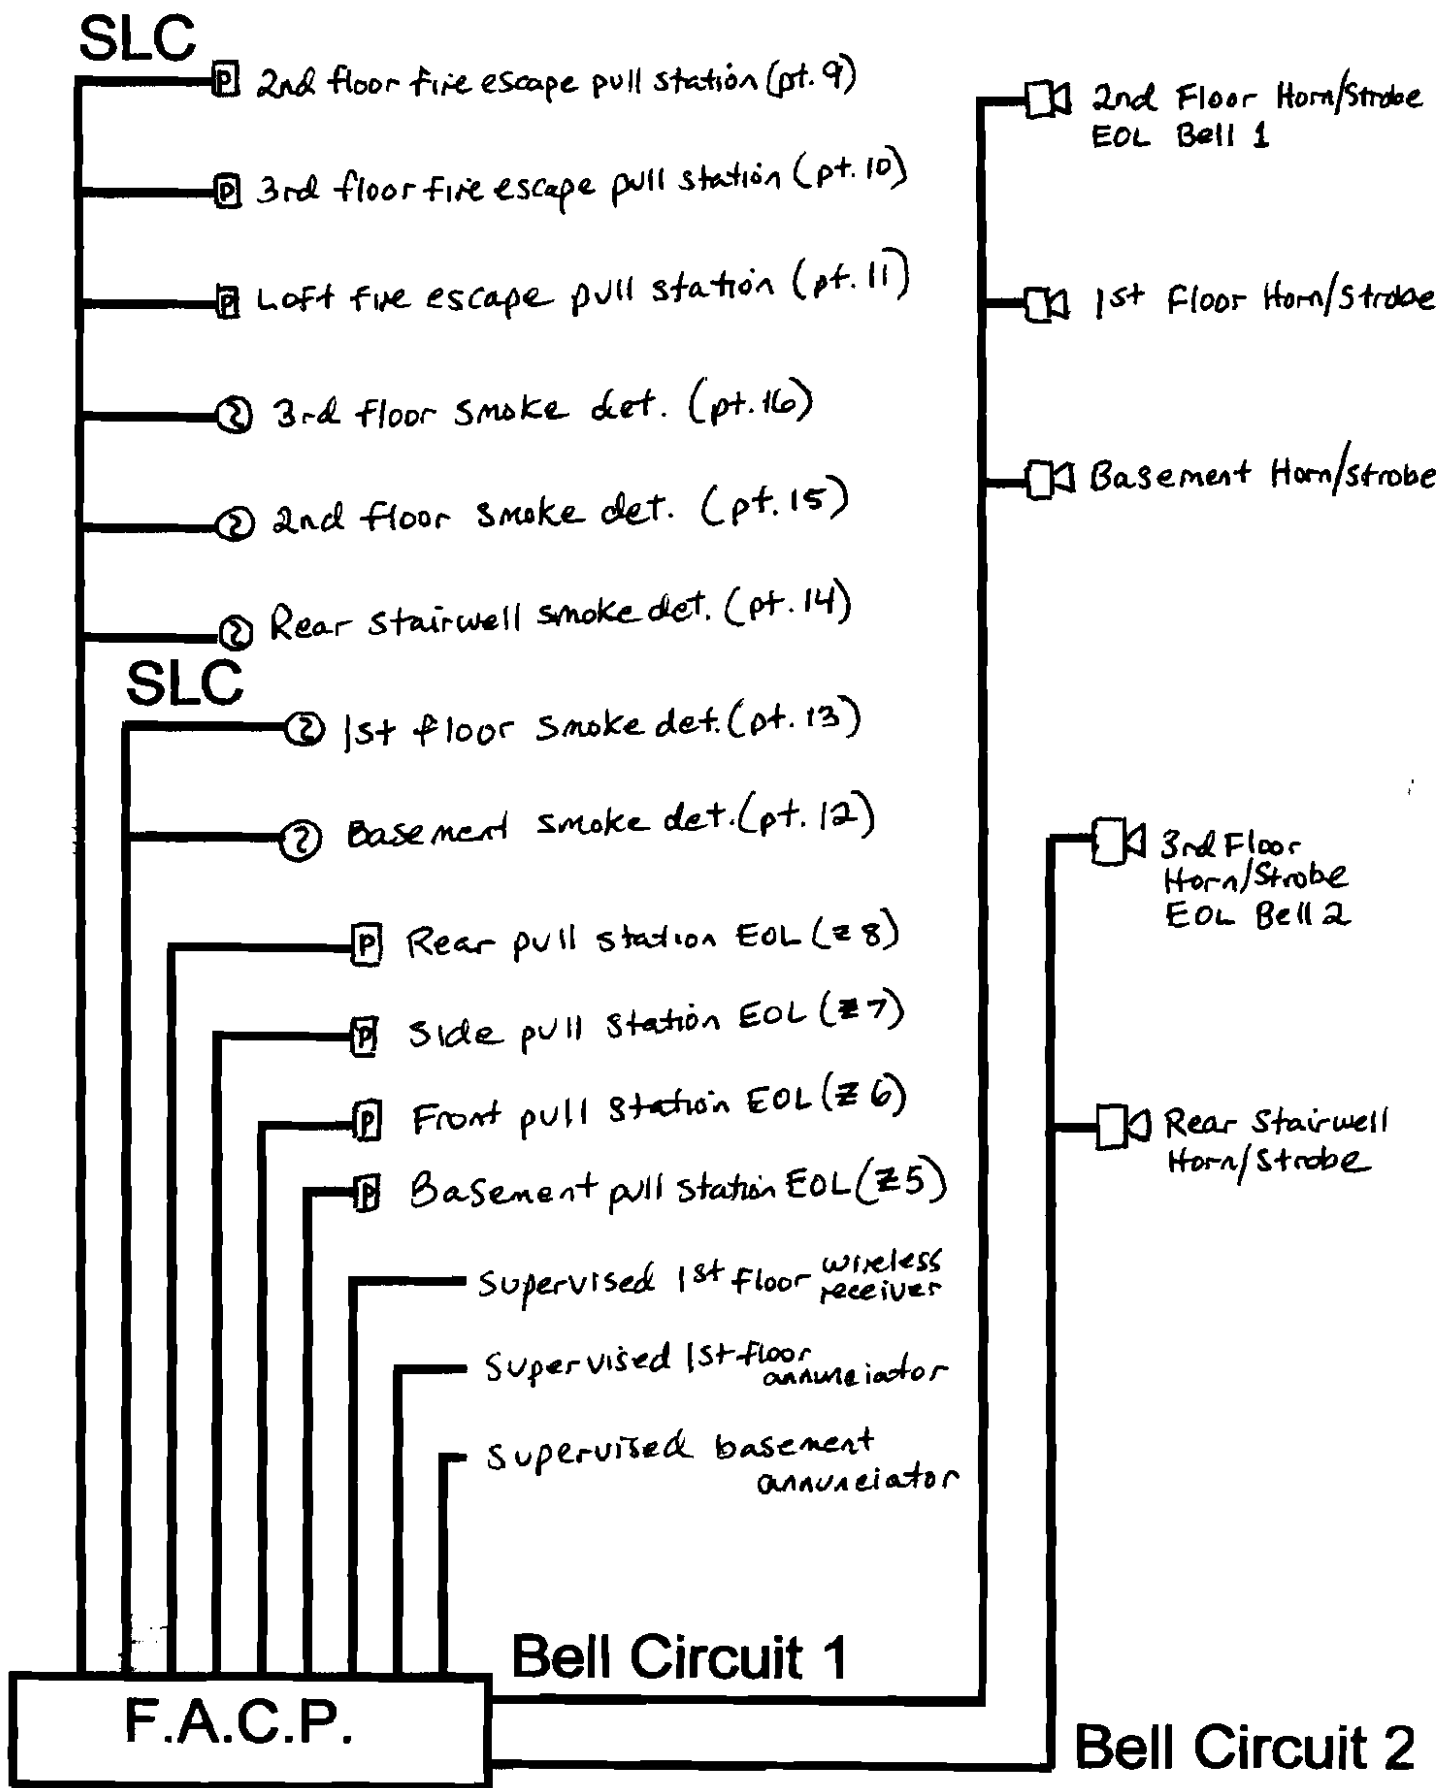 SLC
P 2nd floor fire escape pull station (pt. 9)
P 3rd floor fire escape pull station (pt. 10)
P Loft fire escape pull station (pt. 11)
3rd floor smoke det. (pt. 16)
2nd floor smoke det. (pt. 15)
Rear stairwell smoke det. (pt. 14)
SLC
1st floor smoke det. (pt. 13)
Basement smoke det. (pt. 12)
P Rear pull station EOL (Z 8)
P Side pull station EOL (Z 7)
P Front pull station EOL (Z 6)
P Basement pull station EOL (Z 5)
Supervised 1st floor wireless
receiver
Supervised 1st floor
annunciator
Supervised basement
annunciator
F.A.C.P.
Bell Circuit 1
2nd Floor Horn/Strobe
EOL Bell 1
1st Floor Horn/Strobe
Basement Horn/Strobe
3rd Floor
Horn/Strobe
EOL Bell 2
Rear Stairwell
Horn/Strobe
Bell Circuit 2